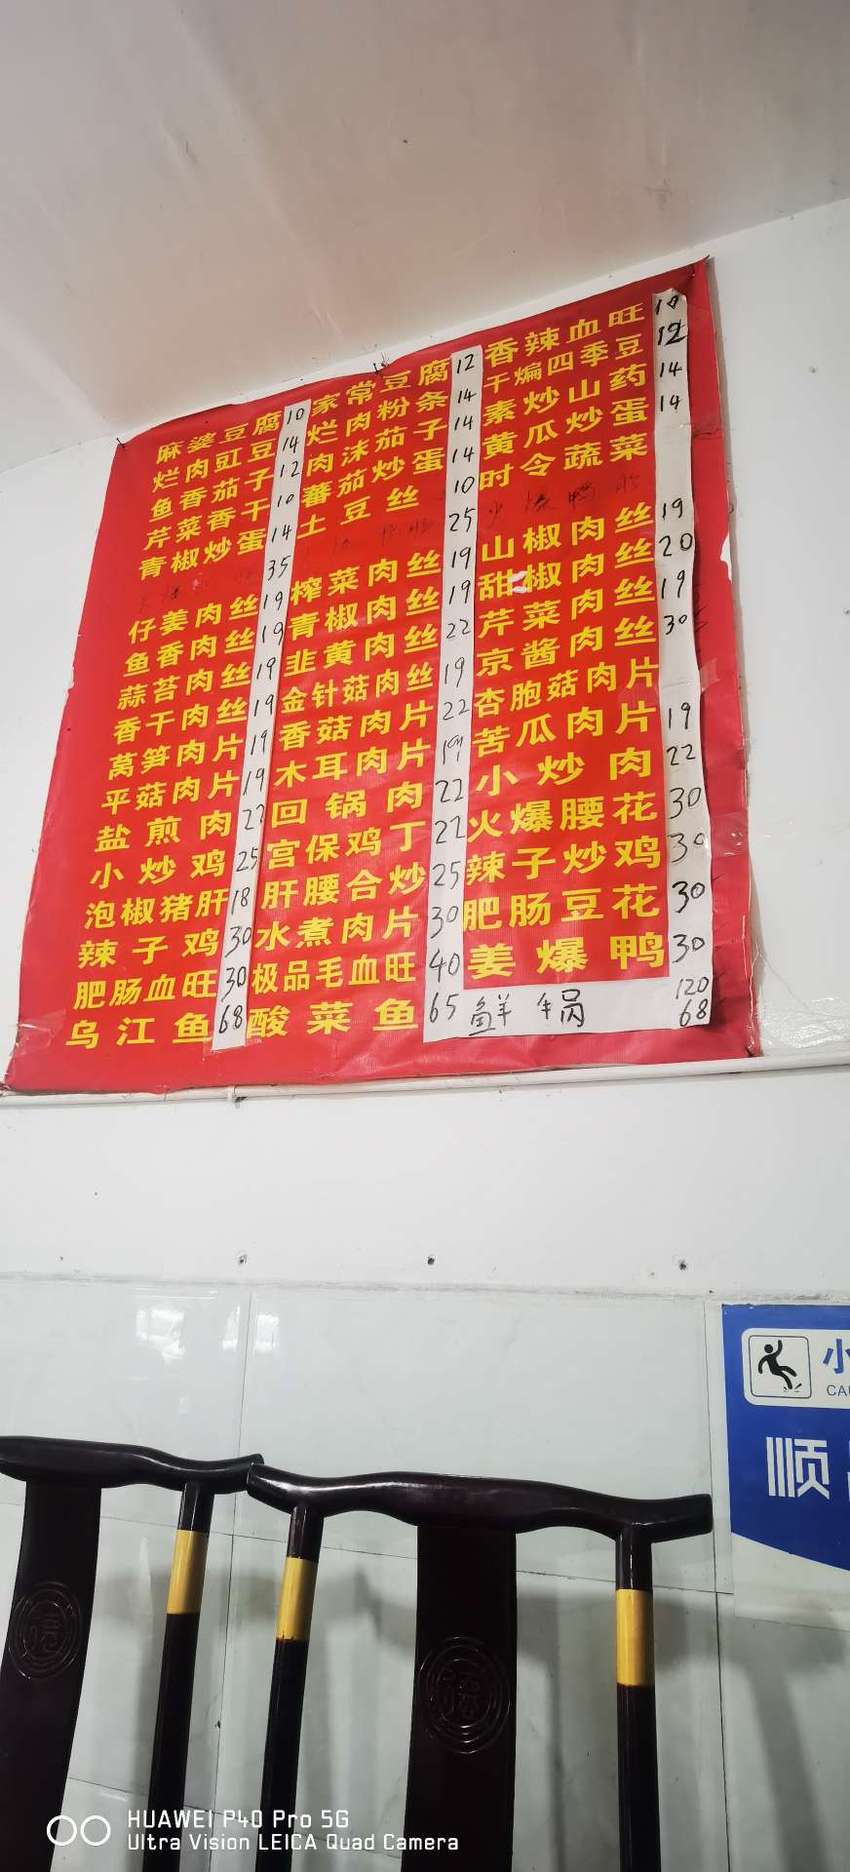 麻婆豆腐 10
烂肉豇豆 14
鱼香茄子 12
芹菜香干 10
青椒炒蛋 14
35
仔姜肉丝 19
鱼香肉丝 19
蒜苔肉丝 19
香干肉丝 19
莴笋肉片 19
平菇肉片 19
盐煎肉 22
小炒鸡 25
泡椒猪肝 18
辣子鸡 30
肥肠血旺 30
乌江鱼 68
家常豆腐 12
烂肉粉条 14
肉沫茄子 14
蕃茄炒蛋 14
土豆丝 10
25
榨菜肉丝 19
青椒肉丝 19
韭黄肉丝 22
金针菇肉丝 19
香菇肉片 22
木耳肉片 19
回锅肉 22
宫保鸡丁 22
肝腰合炒 25
水煮肉片 30
极品毛血旺 40
酸菜鱼 65
香辣血旺 10
干煸四季豆 12
素炒山药 14
黄瓜炒蛋 14
时令蔬菜
山椒肉丝 19
甜椒肉丝 20
芹菜肉丝 19
京酱肉丝 30
杏胞菇肉片
苦瓜肉片 19
小炒肉 22
火爆腰花 30
辣子炒鸡 30
肥肠豆花 30
姜爆鸭 30
鲜锅 120
68
小
CAU
顺
HUAWEI P40 Pro 5G
Ultra Vision LEICA Quad Camera